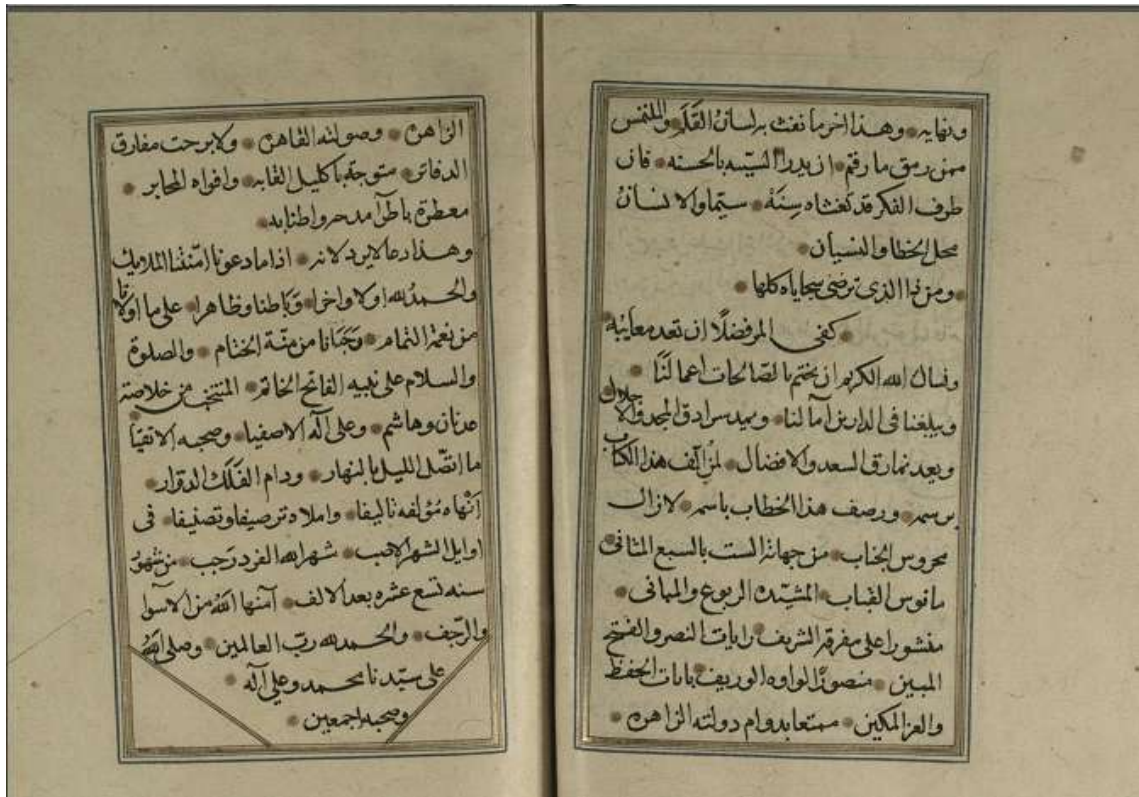 ونهايه وهذا اخر ما نفث به لسان القلم والملتمس
ممن رمق ما رقم ان يدرا السيئه بالحسنه فان
طرف الفكر قد تغشاه سنة سيما والانسان
محل الخطا والنسيان
ومن ذا الذى ترضى سجاياه كلها
كفى المر فضلا ان تعد معايبه
ونسال الله الكريم ان يختم بالصالحات اعمالنا
ويبلغنا فى الدارين آمالنا ويمد سرادق المجد والاجلال
ويعد نمارق السعد والافضال لمن الف هذا الكتاب
برسمه ورصف هذا الخطاب باسمه لازال
محروس الجناب من جهاته الست بالسبع المثانى
مانوس القباب المشيده الربوع والمبانى
منشورا على مفرقه الشريف رايات النصر والفتح
المبين منصورًا لواوه الوريف بايات الحفظ
والعز المكين ممتعا بدوام دولته الزاهره
الزاهره وصولته القاهره ولا برحت مفارق
الدفاتر متوجة باكليل القابه وافواه المحابر
معطرة باطرآ مدحه واطنابه
وهذا دعا لايرد لانه اذا ما دعونا امنتنا الملايك
والحمد لله اولا واخرا وباطنا وظاهرا على ما اولانا
من نعمة التمام وحبانا من منة الختام والصلوة
والسلام على نبيه الفاتح الخاتم المنتخب من خلاصة
عدنان وهاشم وعلى آله الاصفيا وصحبه الاتقيا
ما اتصل الليل بالنهار ودام الفلك الدوار
انهاه مؤلفه تاليفا واملاه ترصيفا وتصنيفا فى
اوايل الشهر الاصب شهر الله الفرد رجب من شهور
سنه تسع عشره بعد الالف آمنها الله من الاسوا
والرجف والحمد لله رب العالمين وصلى الله
على سيدنا محمد وعلى آله
وصحبه اجمعين